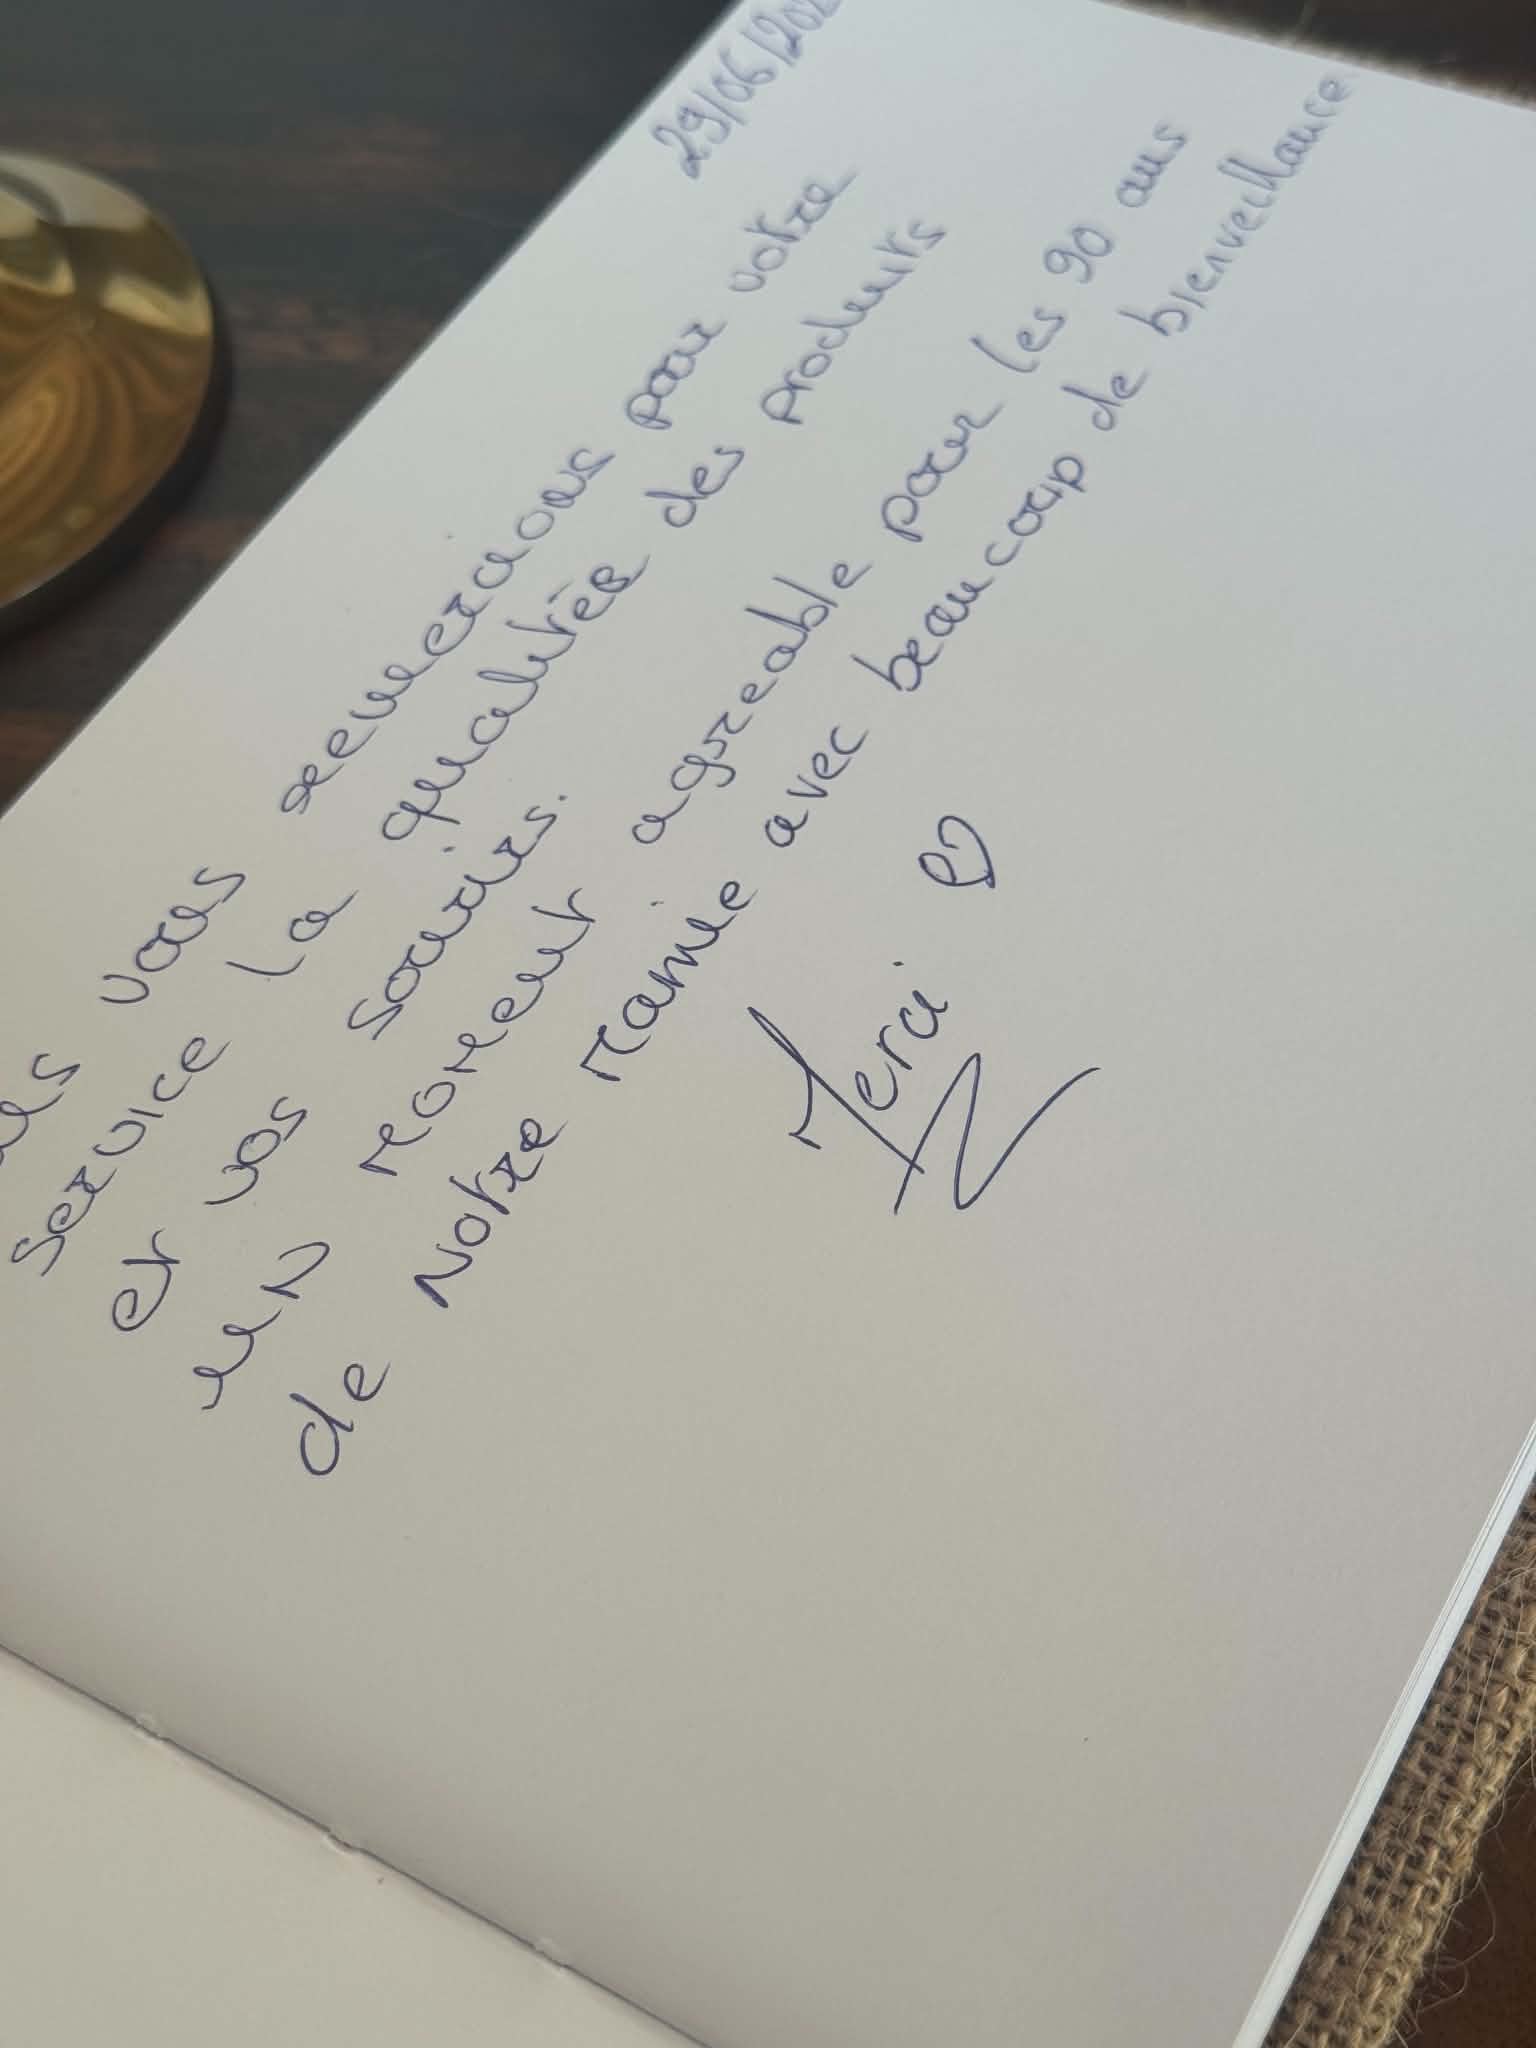 29/06/202
vous remercions pour votre
service la qualitée des produits
et vos sourirs.
un moment agreable pour les 90 ans
de Notre mamie avec beaucoup de bienveillance
Merci ♡